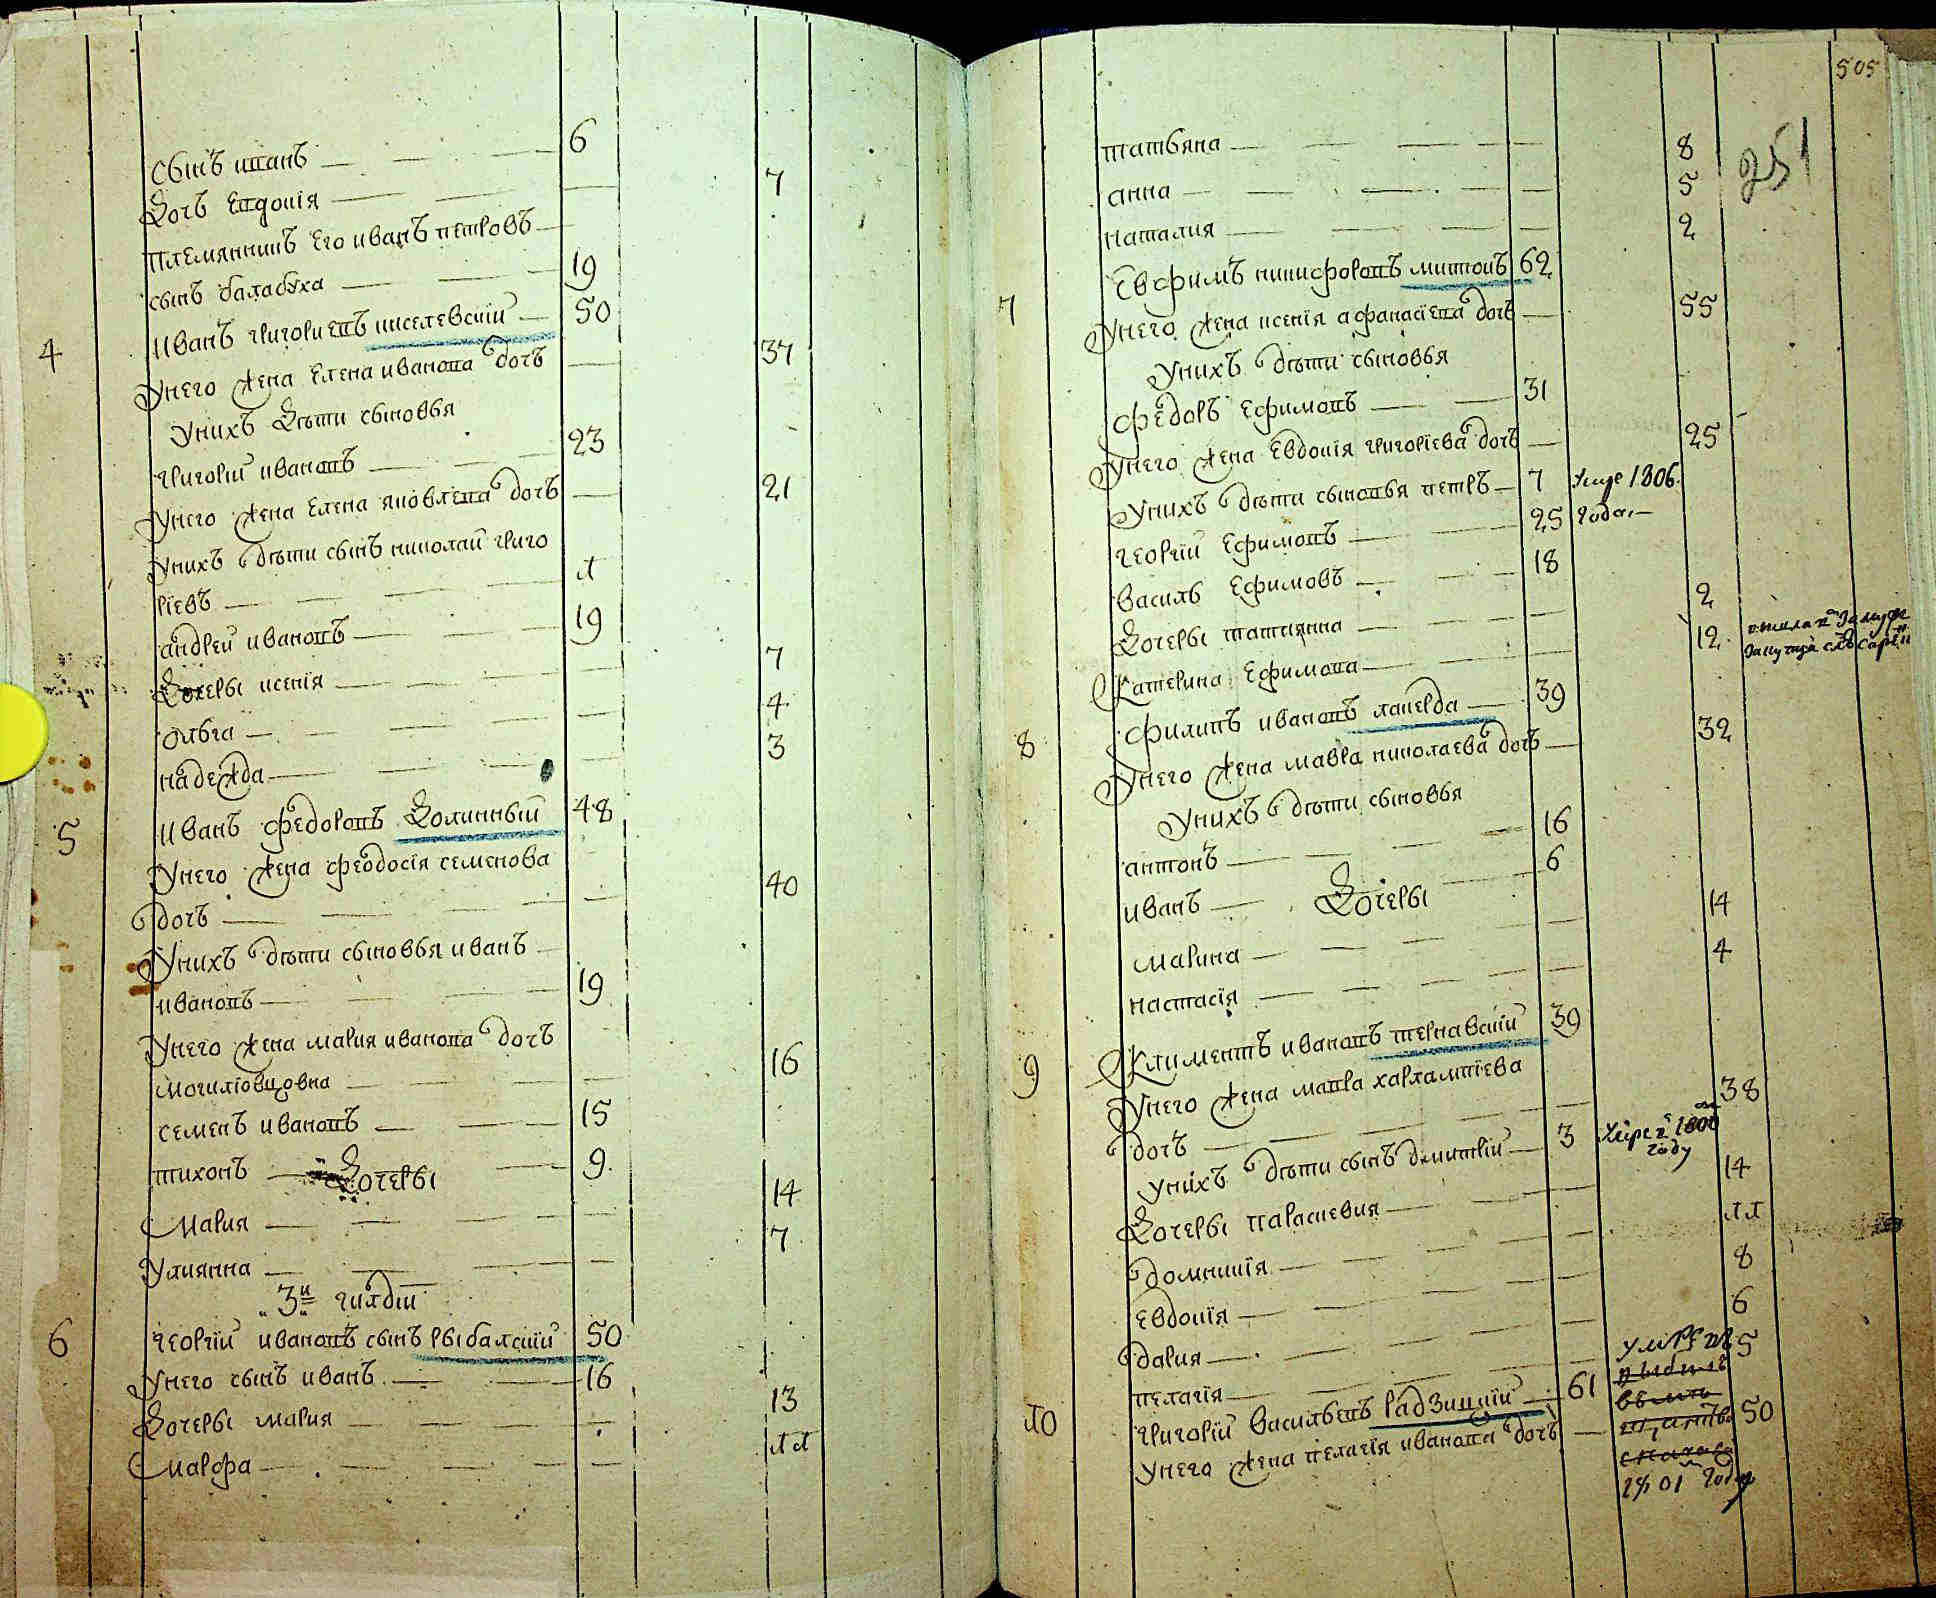 сынъ иванъ 6
дочь Евдокія 7
племянникъ его иванъ петровъ
сынъ балабуха 19
4 иванъ григориевъ киселевскій 50
унего жена Елена иванова дочь 37
унихъ дѣти сыновья
григорій ивановъ 23
унего жена Елена яковлева дочь 21
унихъ дѣти сынъ николай григо
ріевъ 1
андрей ивановъ 19
дочеры ксенія 7
олвга 4
надежда 3
5 иванъ федоровъ долинный 48
унего жена феодосія семенова
дочь 40
унихъ дѣти сыновья иванъ
ивановъ 19
унего жена мария иванова дочь
могиліовцовна 16
семенъ ивановъ 15
тихонъ 9
дочеры
Мария 14
улиянна 7
3й гилдіи
6 георгій ивановъ сынъ рыбалскій 50
унего сынъ иванъ 16
дочеры мария 13
Марфа 11
505
251
татьяна 8
анна 5
наталия 2
7 Евфимъ никифоровъ митокъ 62
унего жена ксенія афанасіева дочь 55
унихъ дѣти сыновья
федоръ Ефимовъ 31
унего жена Евдокія григоріева дочь 25
унихъ дѣти сыновья петръ 7 умре 1806.
георгій Ефимовъ 25 года
василь Ефимовъ 18
дочеры татиянна 2
Катерина Ефимова 12
8 филипъ ивановъ лаперда 39
унего жена мавра николаева дочь 32
унихъ дѣти сыновья
антонъ 16
иванъ 6
дочеры
марина 14
настасія 4
9 Климентъ ивановъ тернавскій 39
унего жена мавра харлампіева
дочь 38
унихъ дѣти сынъ дмитрій 3 умре в 1800 году
дочеры параскевия 14
домникія 11
Евдокія 8
дария 6
пелагія 5
10 григорій васильевъ радзицкій 61 умре въ
унего жена пелагія иванова дочь 50
1801 году